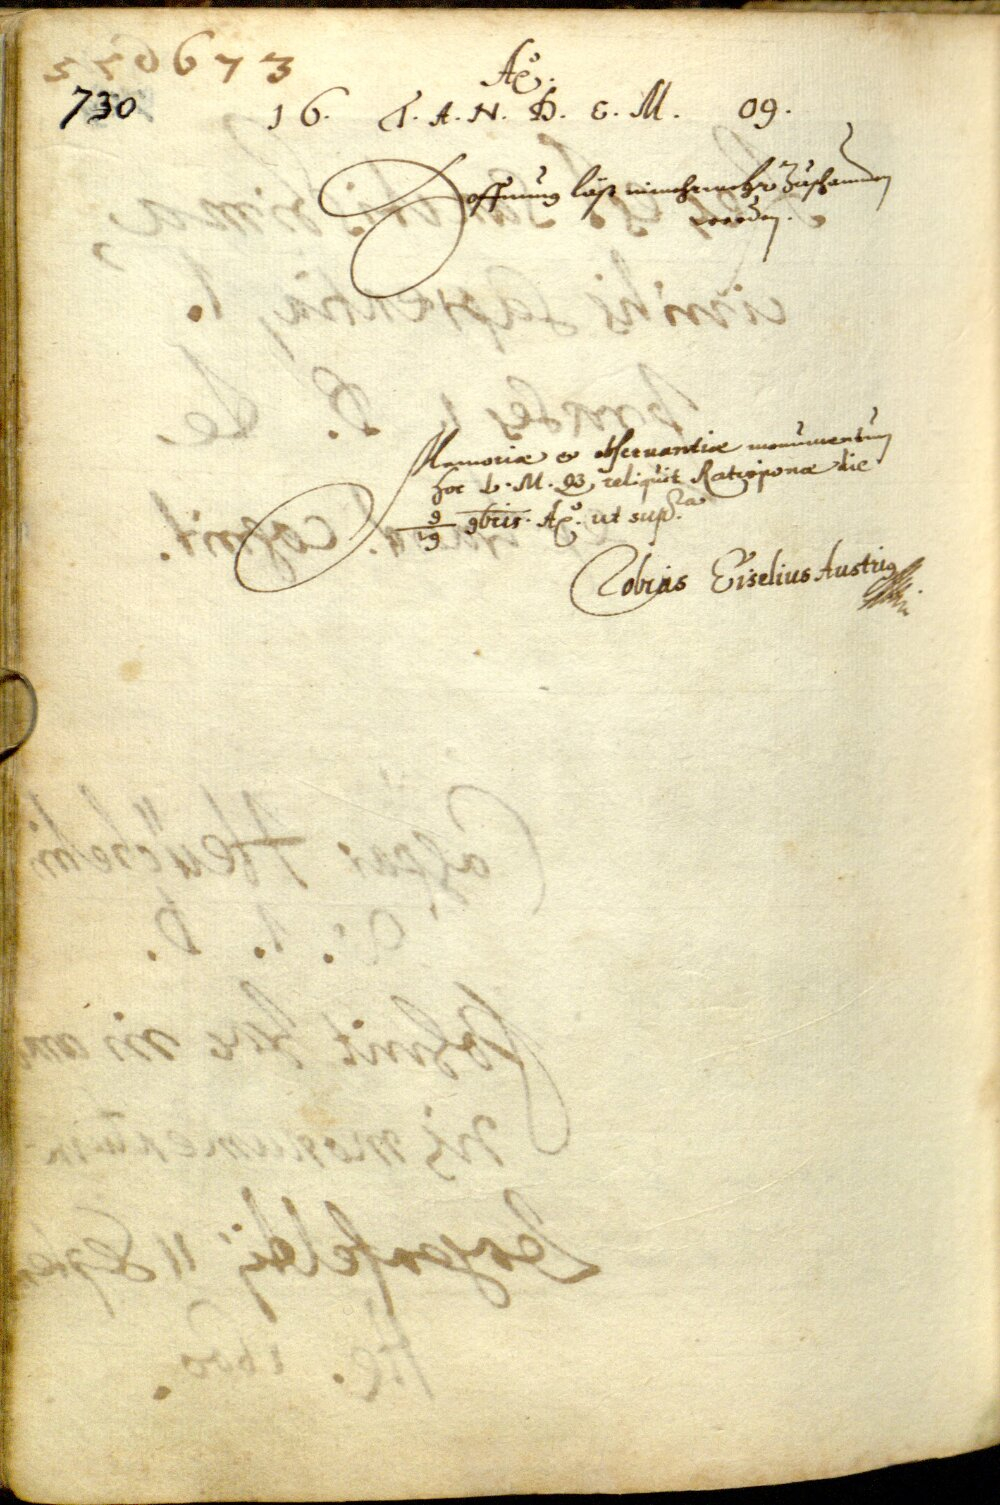 550673
730
Aõ.
16. T. A. N. D. E. M. 09.
Hoffnung läst nimehrmehr Zuschanden
werden.
Memoriæ et observantiæ monumentum
hoc L. M. Q3 reliquit Ratisponæ die
9/19 9bris. Aõ. ut sup.ra
Tobias Eiselius Austri9